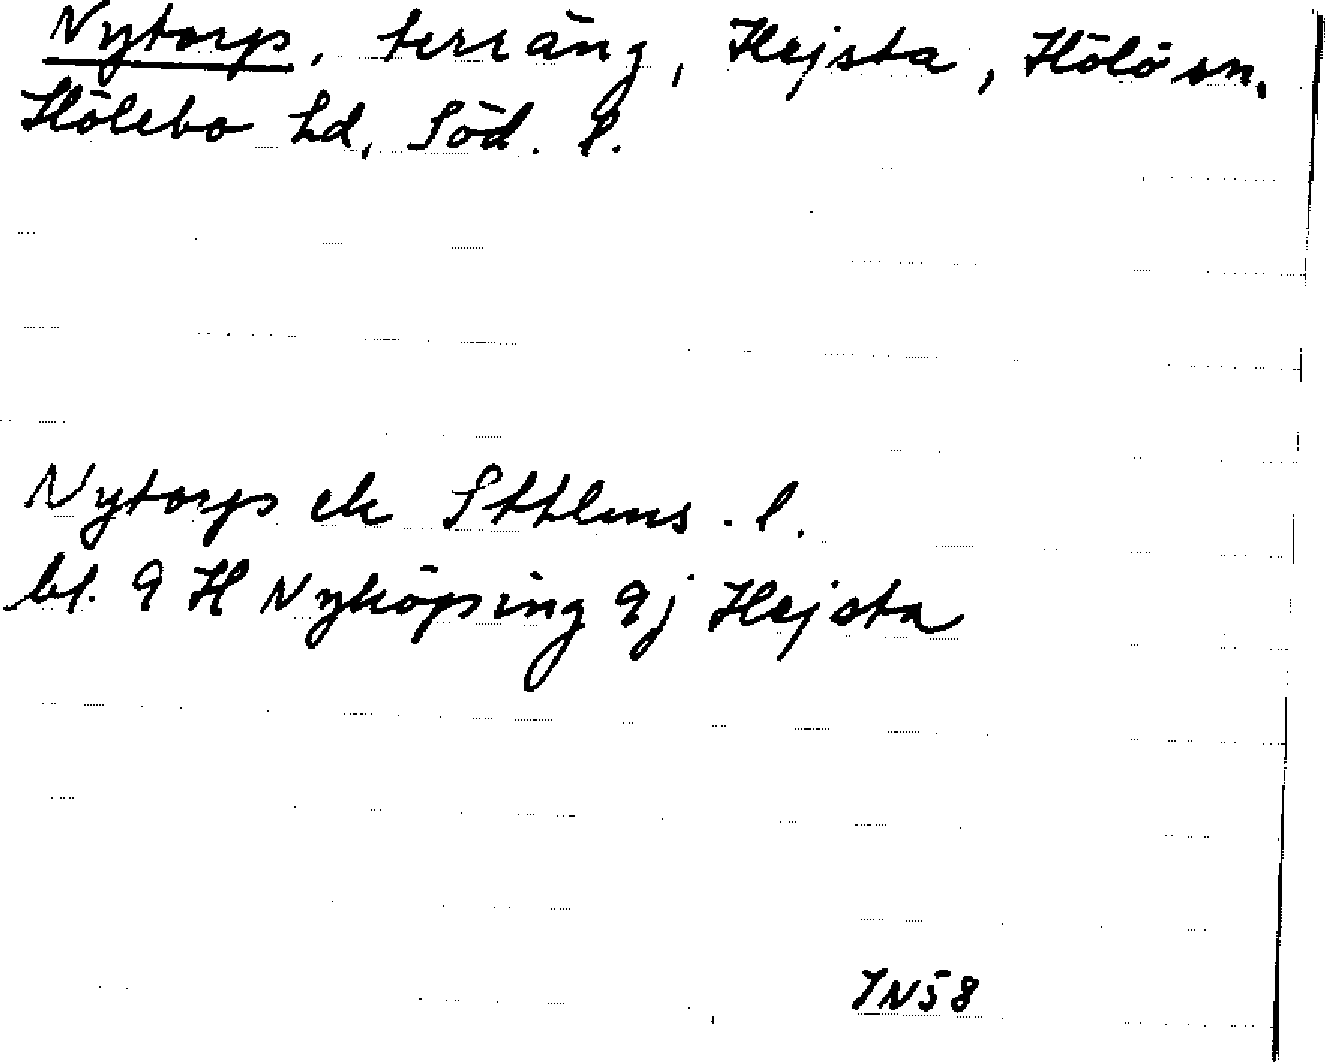 Nytorp, terräng, Hejsta, Hölö sn.
Hölebo hd, Söd. l.
Nytorp ek Sthlms. l.
bl. 9 H Nyköping 9j Hejsta
IN58